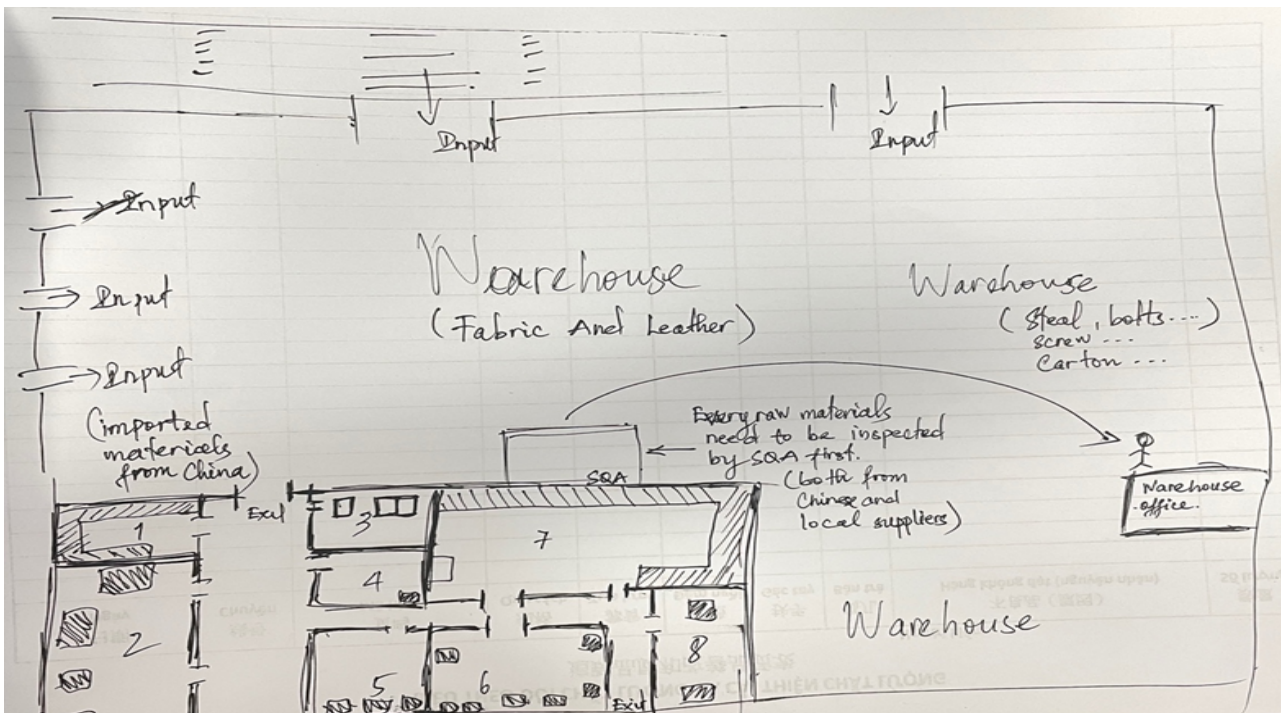 Input
Input
Input
Input
Input
Warehouse
(Fabric And Leather)
Warehouse
(Steal, bolts....)
screw ...
Carton ...
(imported
materials
from China)
Every raw materials
need to be inspected
by SQA first.
(both from
Chinese and
local suppliers)
SQA
Warehouse
office.
Exit
1
2
3
4
5
6
7
8
Exit
Warehouse